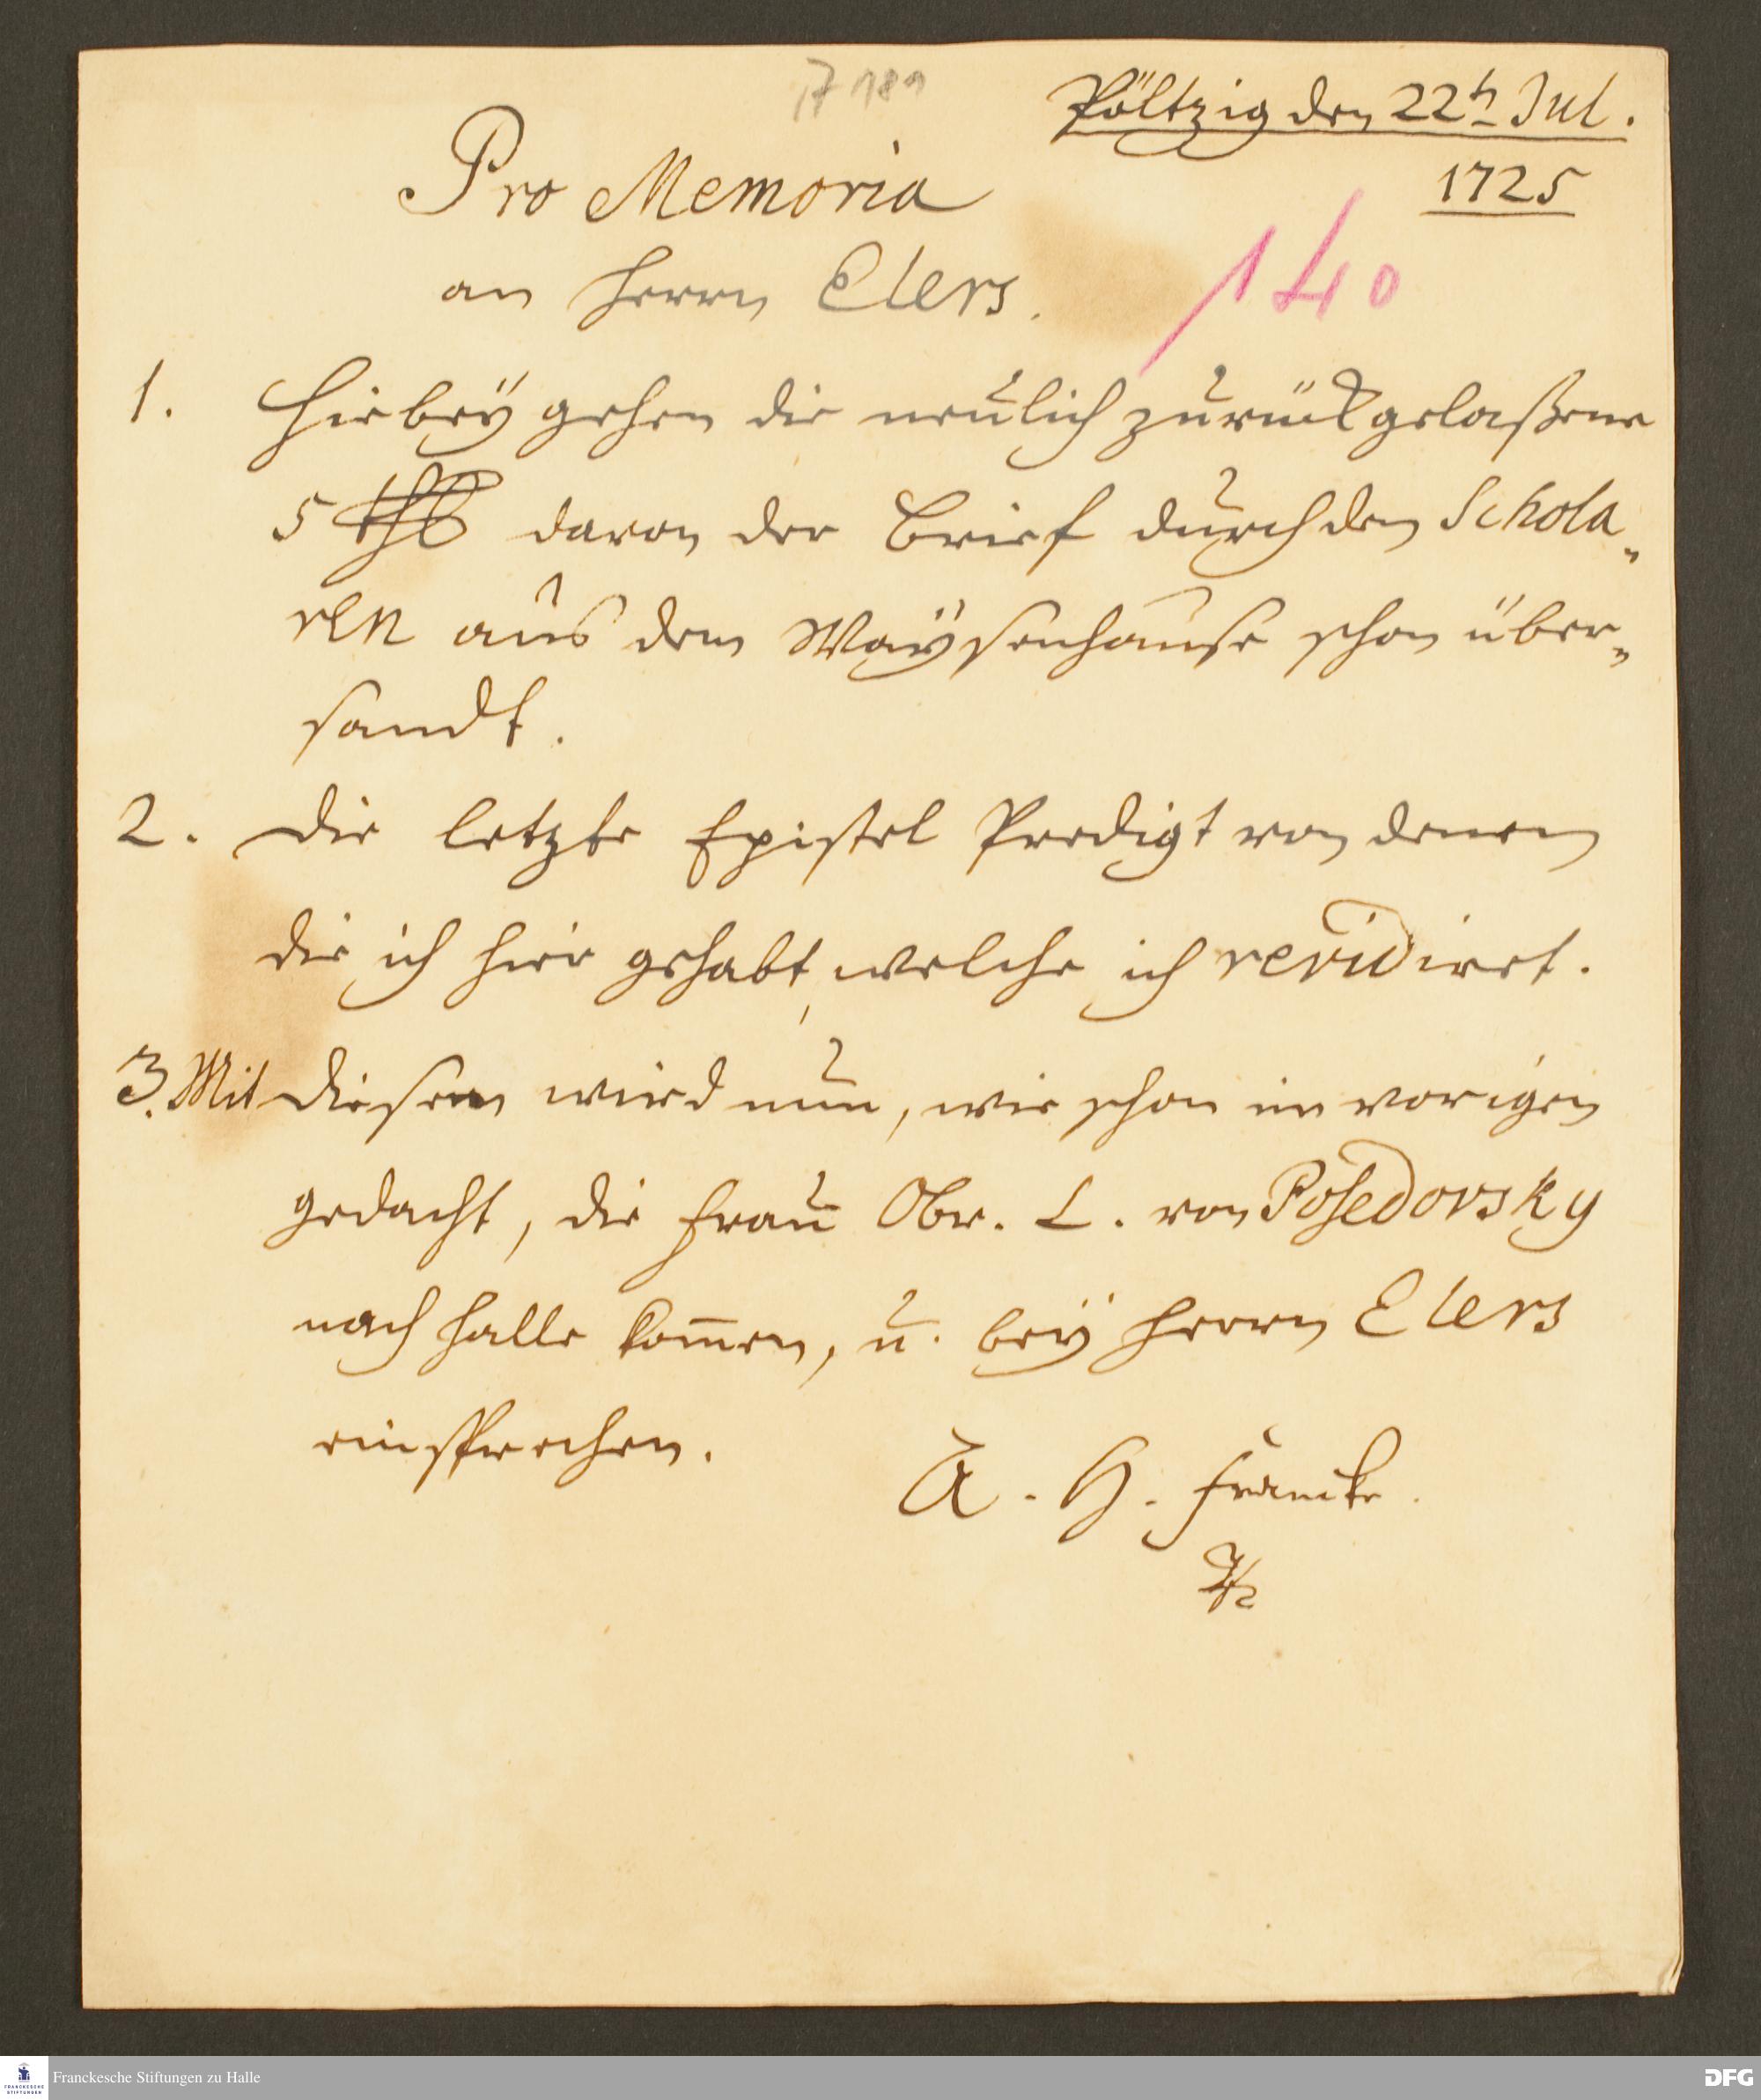 Pöltzig den 22t Jul.
1725
Pro Memoria
an Herrn Elers.
140
1. Hiebey gehen die neulich zurückgelaßene
5 thl davon der Brief durch den Schola=
ren aus dem Waysenhause schon über=
sandt.
2. Die letzte Epistel Predigt von denen
die ich hier gehabt, welche ich revidiret.
3. Mit diesem wird nun, wie schon im vorigen
gedacht, die Frau Obr. L. von Posedovsky
nach Halle kom̅en, u. bey Herrn Elers
einsprechen.
A. H. Francke.
Franckesche Stiftungen zu Halle
FRANCKESCHE STIFTUNGEN
DFG